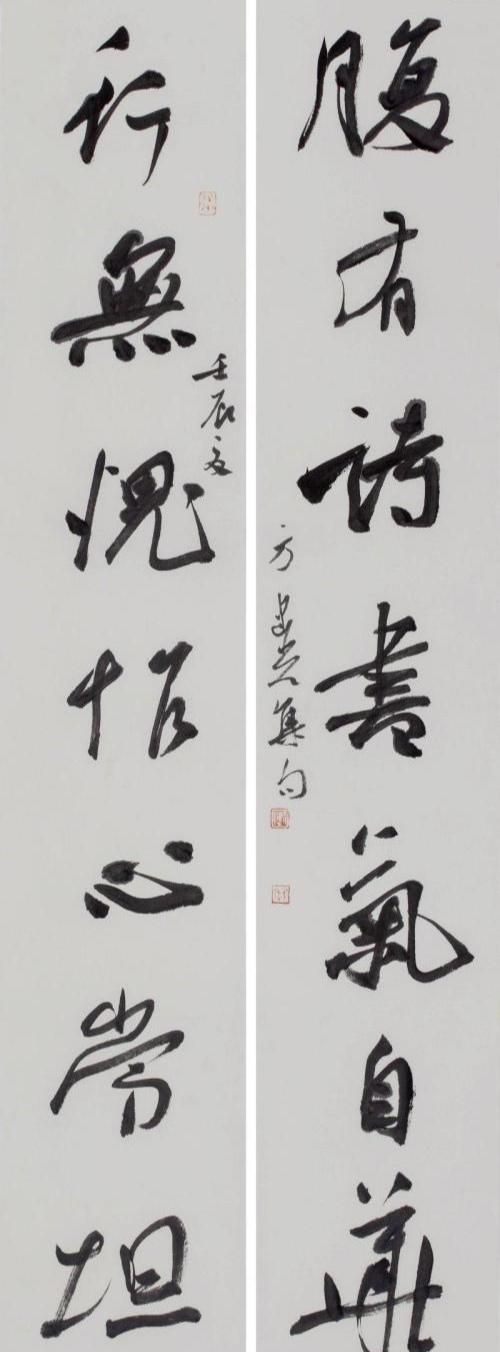 腹有詩書氣自華
方集句
行無愧怍心常坦
壬辰夏